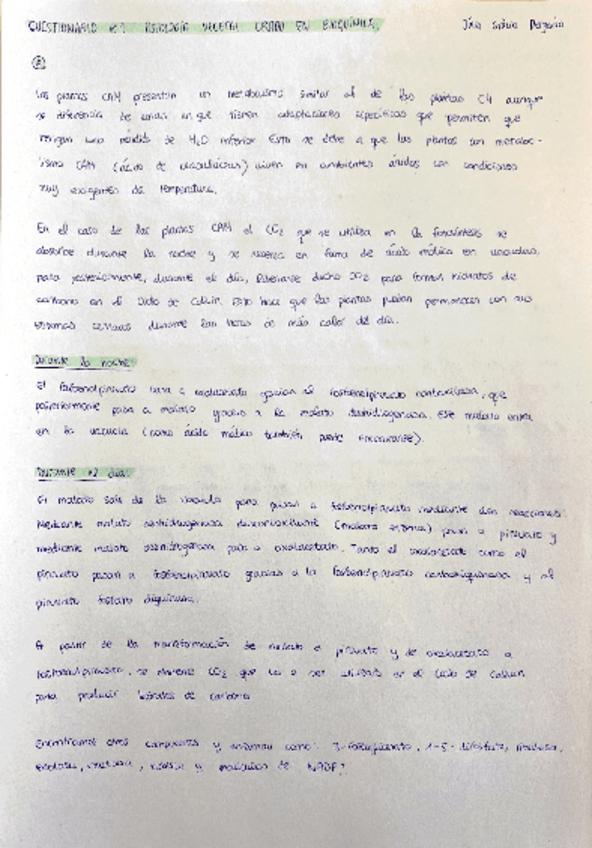 CUESTIONARIO Nº1 FISIOLOGÍA VEGETAL GRADO EN BIOQUÍMICA.
Las plantas CAM presentan un metabolismo similar al de las plantas C4 aunque
se diferencia de estas en que tienen adaptaciones específicas que permiten que
tengan una pérdida de H2O inferior. Esto se debe a que las plantas con metabo-
lismo CAM (ácido de crasuláceas) viven en ambientes áridos con condiciones
muy exigentes de temperatura.
En el caso de las plantas CAM el CO2 que se utiliza en la fotosíntesis se
absorbe durante la noche y se reserva en forma de ácido málico en vacuolas,
para posteriormente, durante el día, liberarse dicho CO2 para formar hidratos de
carbono en el Ciclo de Calvin. Esto hace que las plantas puedan permanecer con sus
estomas cerrados durante las horas de más calor del día.
Durante la noche
El fosfoenolpiruvato pasa a oxalacetato gracias al fosfoenolpiruvato carboxilasa, que
posteriormente pasa a malato gracias a la malato deshidrogenasa. Este malato entra
en la vacuola (como ácido málico también puede encontrarse).
Durante el día
El malato sale de la vacuola para pasar a fosfoenolpiruvato mediante dos reacciones.
Mediante malato deshidrogenasa descarboxilante (malato enzima) pasa a piruvato y
mediante malato deshidrogenasa pasa a oxalacetato. Tanto el oxalacetato como el
piruvato pasan a fosfoenolpiruvato gracias a la fosfoenolpiruvato carboxiquinasa y al
piruvato fosfato diquinasa.
A partir de la transformación de malato a piruvato y de oxalacetato a
fosfoenolpiruvato, se obtiene CO2 que va a ser utilizado en el Ciclo de Calvin
para producir hidratos de carbono
Encontramos otros compuestos y enzimas como: 3-fosfoglicerato, 1-5-difosfato, ribulosa,
enolasa, y de NADP+